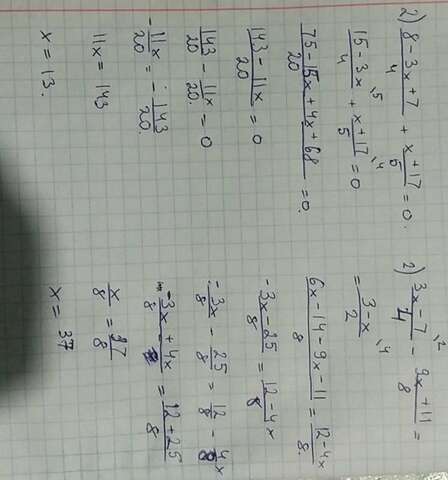 2) (8 - 3x + 7)/4 + (x + 17)/5 = 0.
(15 - 3x)/4 ,5 + (x + 17)/5 ,4 = 0
(75 - 15x + 4x + 68)/20 = 0.
(143 - 11x)/20 = 0
143/20 - 11x/20. = 0
-11x/20 = -143/20.
11x = 143
x = 13.
2) (3x - 7)/4 ,2 - (9x + 11)/8 =
= (3 - x)/2 ,4
(6x - 14 - 9x - 11)/8 = (12 - 4x)/8.
(-3x - 25)/8 = (12 - 4x)/8
-3x/8 - 25/8 = 12/8 - 4x/8
(-3x + 4x)/8 = (12 + 25)/8
x/8 = 37/8
x = 37